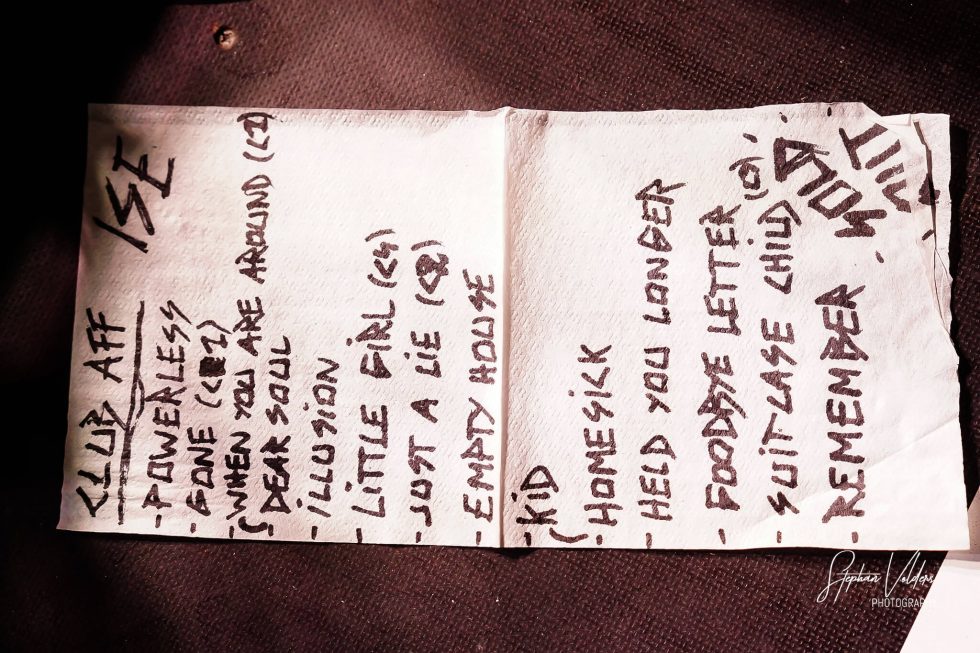 CLUB AFF ISE
- POWERLESS
- GONE
- WHEN YOU ARE AROUND (C2)
- DEAR SOUL
- ILLUSION
- LITTLE GIRL (C4)
- JUST A LIE
- EMPTY HOUSE
- KID
- HOMESICK
- HELD YOU LONGER
- GOODBYE LETTER
- SUITCASE CHILD
- REMEMBER
Stephan Volders
PHOTOGRAPHY